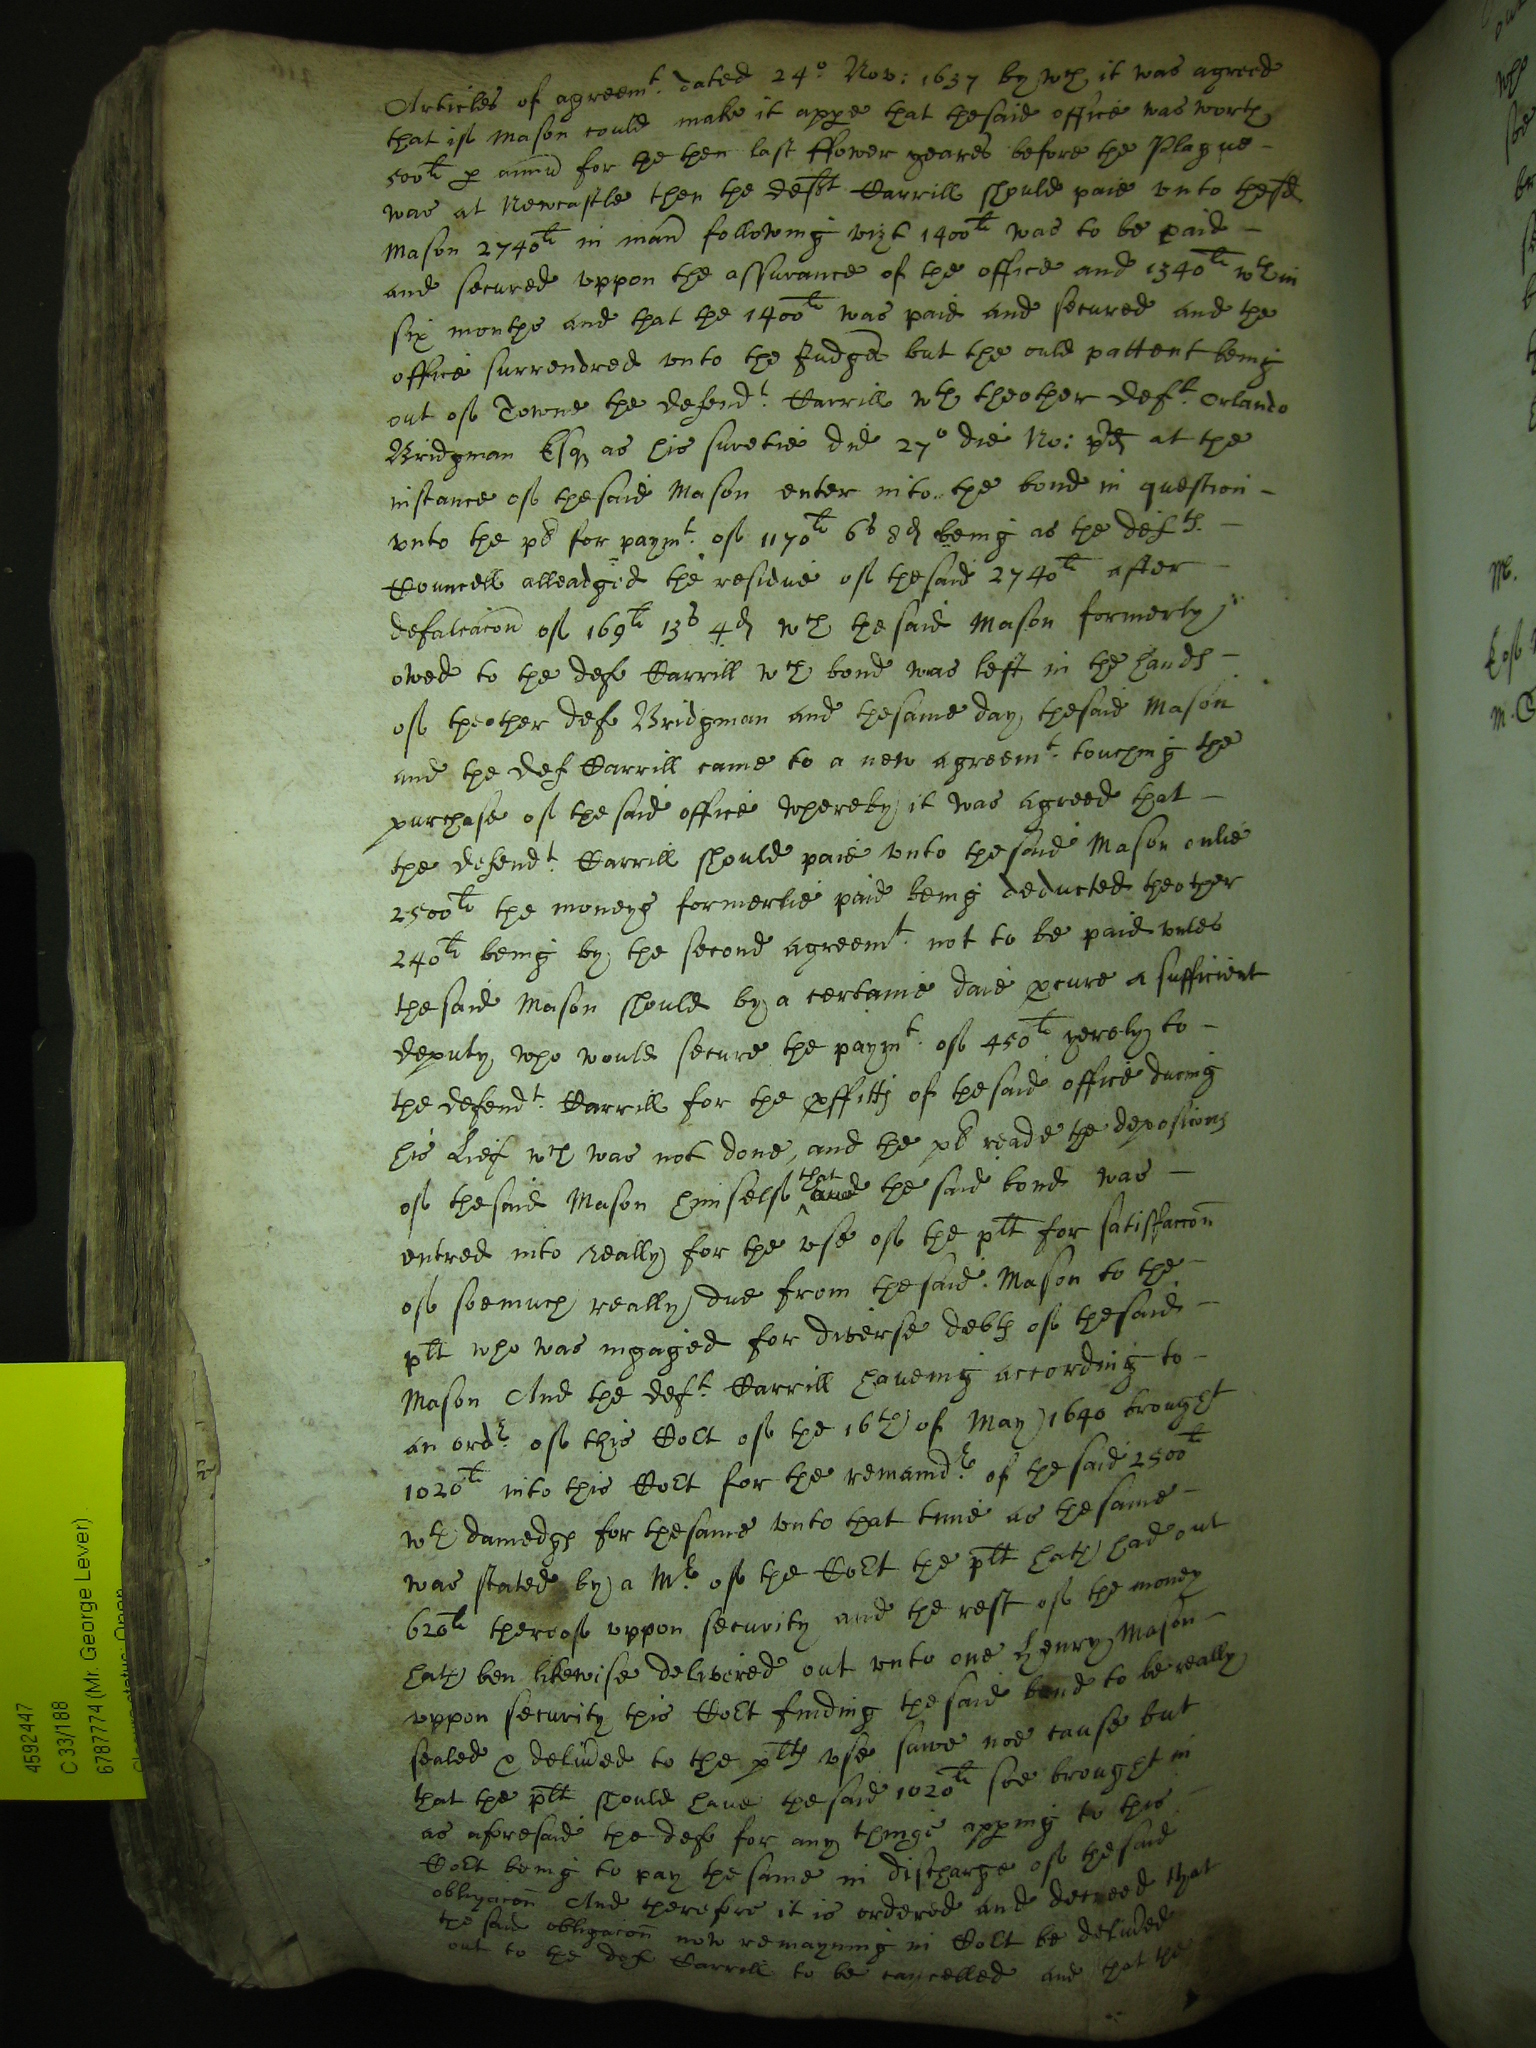 Articles of agreemt. dated 24o Nov: 1637 by wch it was agreed
that if Mason could make it appe that thesaid office was worth
500li p annu for the then last ffower yeares before the Plague -
was at Newcastle then the deft Carrill should paie vnto thesd
Mason 2740li in man following vizt 1400li was to be paid -
and secured vppon the assurance of the office and 1340li wthin
six months and that the 1400li was paid and secured and the
office surrendred vnto the Judges but the ould pattent being
out of Towne the defendt. Carrill wth theother deft. Orlando
Bridgman Esq as his suretie did 27o die No: pd at the
instance of thesaid Mason enter into the bond in question -
vnto the pl for paymt. of 1170li 6s 8d being as the defts. -
Councell alleadged the residue of thesaid 2740li after -
defalcacon of 169li 13s 4d wch thesaid Mason formerly
owed to the def Carrill wch bond was left in the hands -
of theother def Bridgman and thesame day thesaid Mason
and the def Carrill came to a new agreemt. touching the
purchase of thesaid office whereby it was agreed that -
the defendt. Carrill should paie vnto thesaid Mason onlie
2500li the moneys formerlie paid being deducted theother
240li being by the second agreemt. not to be paid vnles
thesaid Mason should by a certaine daie pcure a sufficient
deputy who would secure the paymt. of 450li yerely to -
the defendt. Carrill for the pffitts of thesaid office during
his Lief wch was not done, and the pl reade the deposicons
of thesaid Mason himself that the said bond was -
entred into really for the vse of the plt for satisfaccon
of soemuch really due from thesaid Mason to the -
plt who was ingaged for diverse debts of thesaid -
Mason And the deft. Carrill haueing according to -
an ordr. of this Cort of the 16th of May 1640 brought
1020li into this Cort for the remaindr. of thesaid 2500li
wth damedgs for thesame vnto that time as thesame -
was stated by a Mr. of the Cort the plt hath had out
620li thereof vppon security and the rest of the money
hath ben likewise delivered out vnto one Henry Mason -
vppon security this Cort finding thesaid bond to be really
sealed & delived to the plts vse sawe noe cause but
that the plt should haue thesaid 1020li soe brought in
as aforesaid the def for any thinge apping to this -
Cort being to pay thesame in discharge of thesaid
obligacon And therefore it is ordered and decreed that
the said obligacon now remayning in Cort be delived
out to the def Carrill to be cancelled and that the
4592447
C 33/188
6787774 (Mr. George Lever)